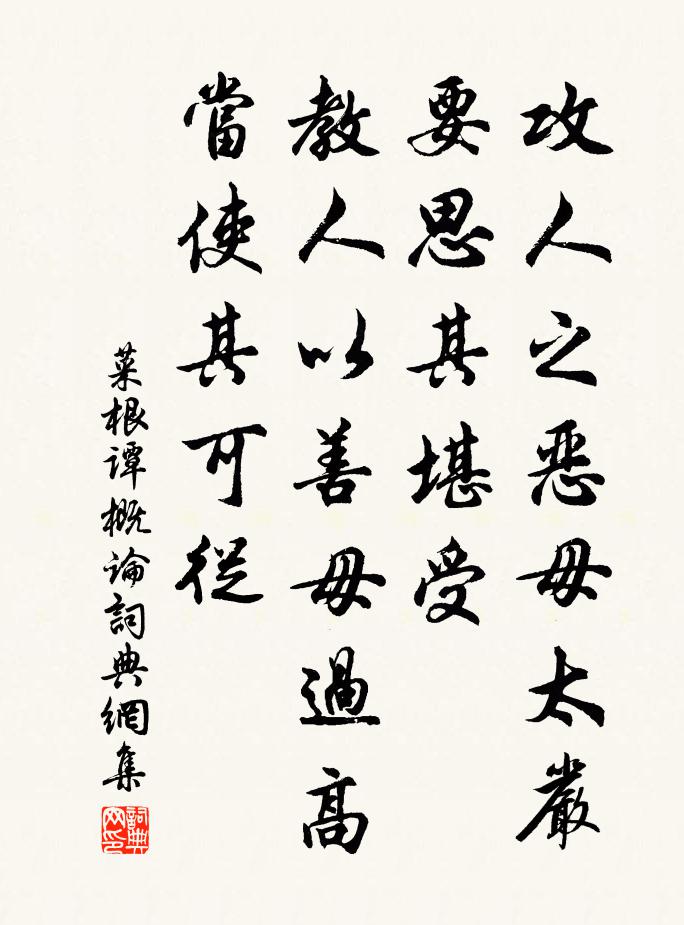 攻人之惡毋太嚴
要思其堪受
教人以善毋過高
當使其可從
菜根譚概論詞典網集
詞典网印